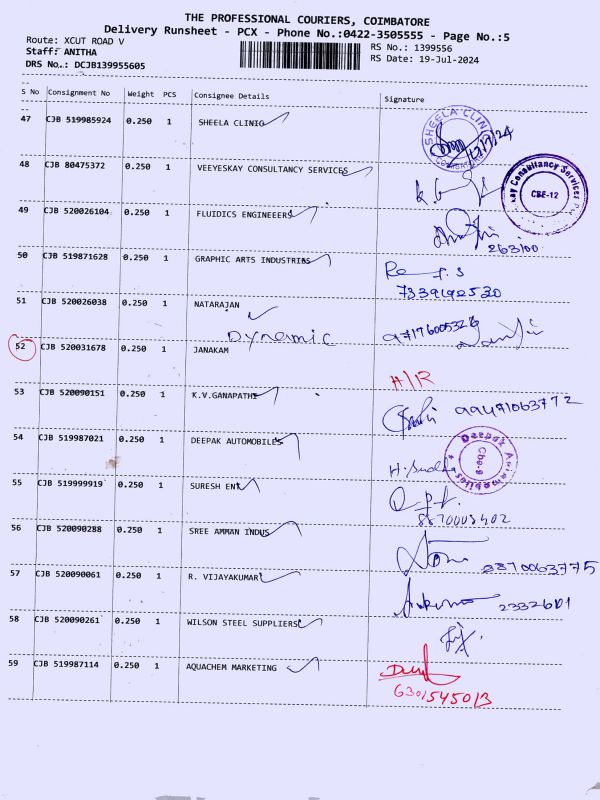 THE PROFESSIONAL COURIERS, COIMBATORE
Delivery Runsheet - PCX - Phone No.:0422-3505555 - Page No.:5
Route: XCUT ROAD V
RS No.: 1399556
Staff: ANITHA
RS Date: 19-Jul-2024
DRS No.: DCJB139955605
S No Consignment No Weight PCS Consignee Details Signature
47 CJB 519985924 0.250 1 SHEELA CLINIC
SHEELA CLINI
48 CJB 80475372 0.250 1 VEEYESKAY CONSULTANCY SERVICES
kay Consultancy Services
CBE-12
49 CJB 520026104 0.250 1 FLUIDICS ENGINEEERS
263100
50 CJB 519871628 0.250 1 GRAPHIC ARTS INDUSTRIES
7339192530
51 CJB 520026038 0.250 1 NATARAJAN
Dynamic
52 CJB 520031678 0.250 1 JANAKAM
53 CJB 520090151 0.250 1 K.V.GANAPATHI
54 CJB 519987021 0.250 1 DEEPAK AUTOMOBILES
Deepak Automobiles
Cbe-9
55 CJB 519999919 0.250 1 SURESH ENT
56 CJB 520090288 0.250 1 SREE AMMAN INDUS
57 CJB 520090061 0.250 1 R. VIJAYAKUMAR
58 CJB 520090261 0.250 1 WILSON STEEL SUPPLIERS
59 CJB 519987114 0.250 1 AQUACHEM MARKETING